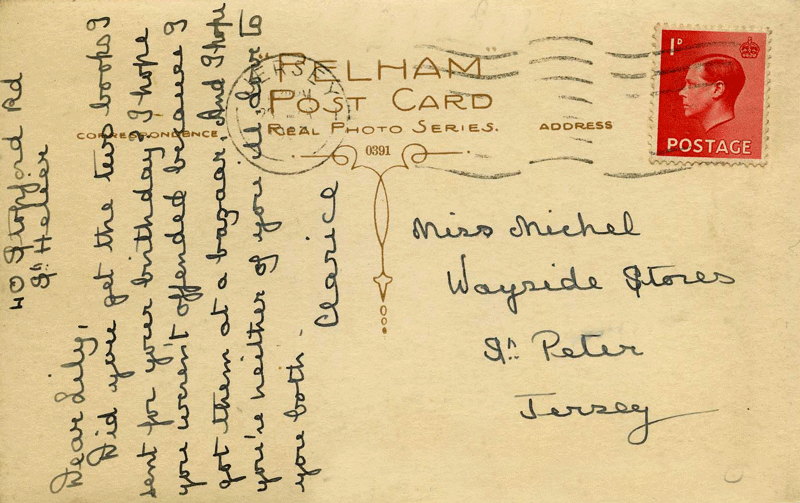 "PELHAM"
POST CARD
REAL PHOTO SERIES.
CORRESPONDENCE
ADDRESS
0391
1D
POSTAGE
40 Stopford Rd
St. Helier
Dear Lily,
Did you get the two books I
sent for your birthday. I hope
you weren't offended because I
got them at a bazaar. And I hope
you're neither of you ill. Love to
you both -
Clarice
Miss Michel
Wayside Stores
St. Peter
Jersey